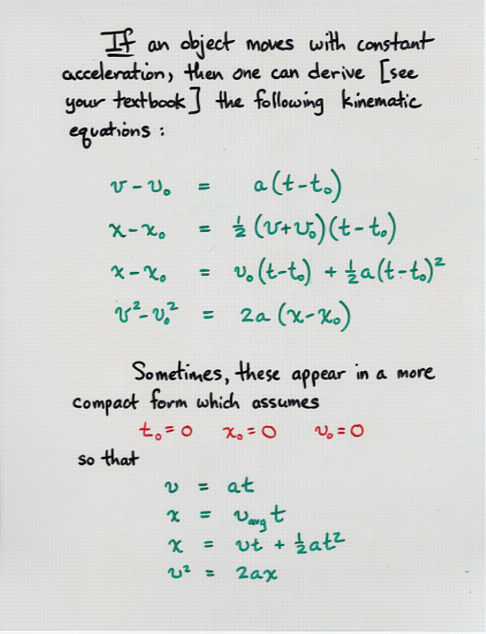 If an object moves with constant
acceleration, then one can derive [see
your textbook] the following kinematic
equations:
v - v₀ = a(t-t₀)
x - x₀ = ½ (v+v₀)(t-t₀)
x - x₀ = v₀(t-t₀) + ½a(t-t₀)²
v² - v₀² = 2a (x-x₀)
Sometimes, these appear in a more
compact form which assumes
t₀ = 0 x₀ = 0 v₀ = 0
so that
v = at
x = v_avg t
x = vt + ½at²
v² = 2ax